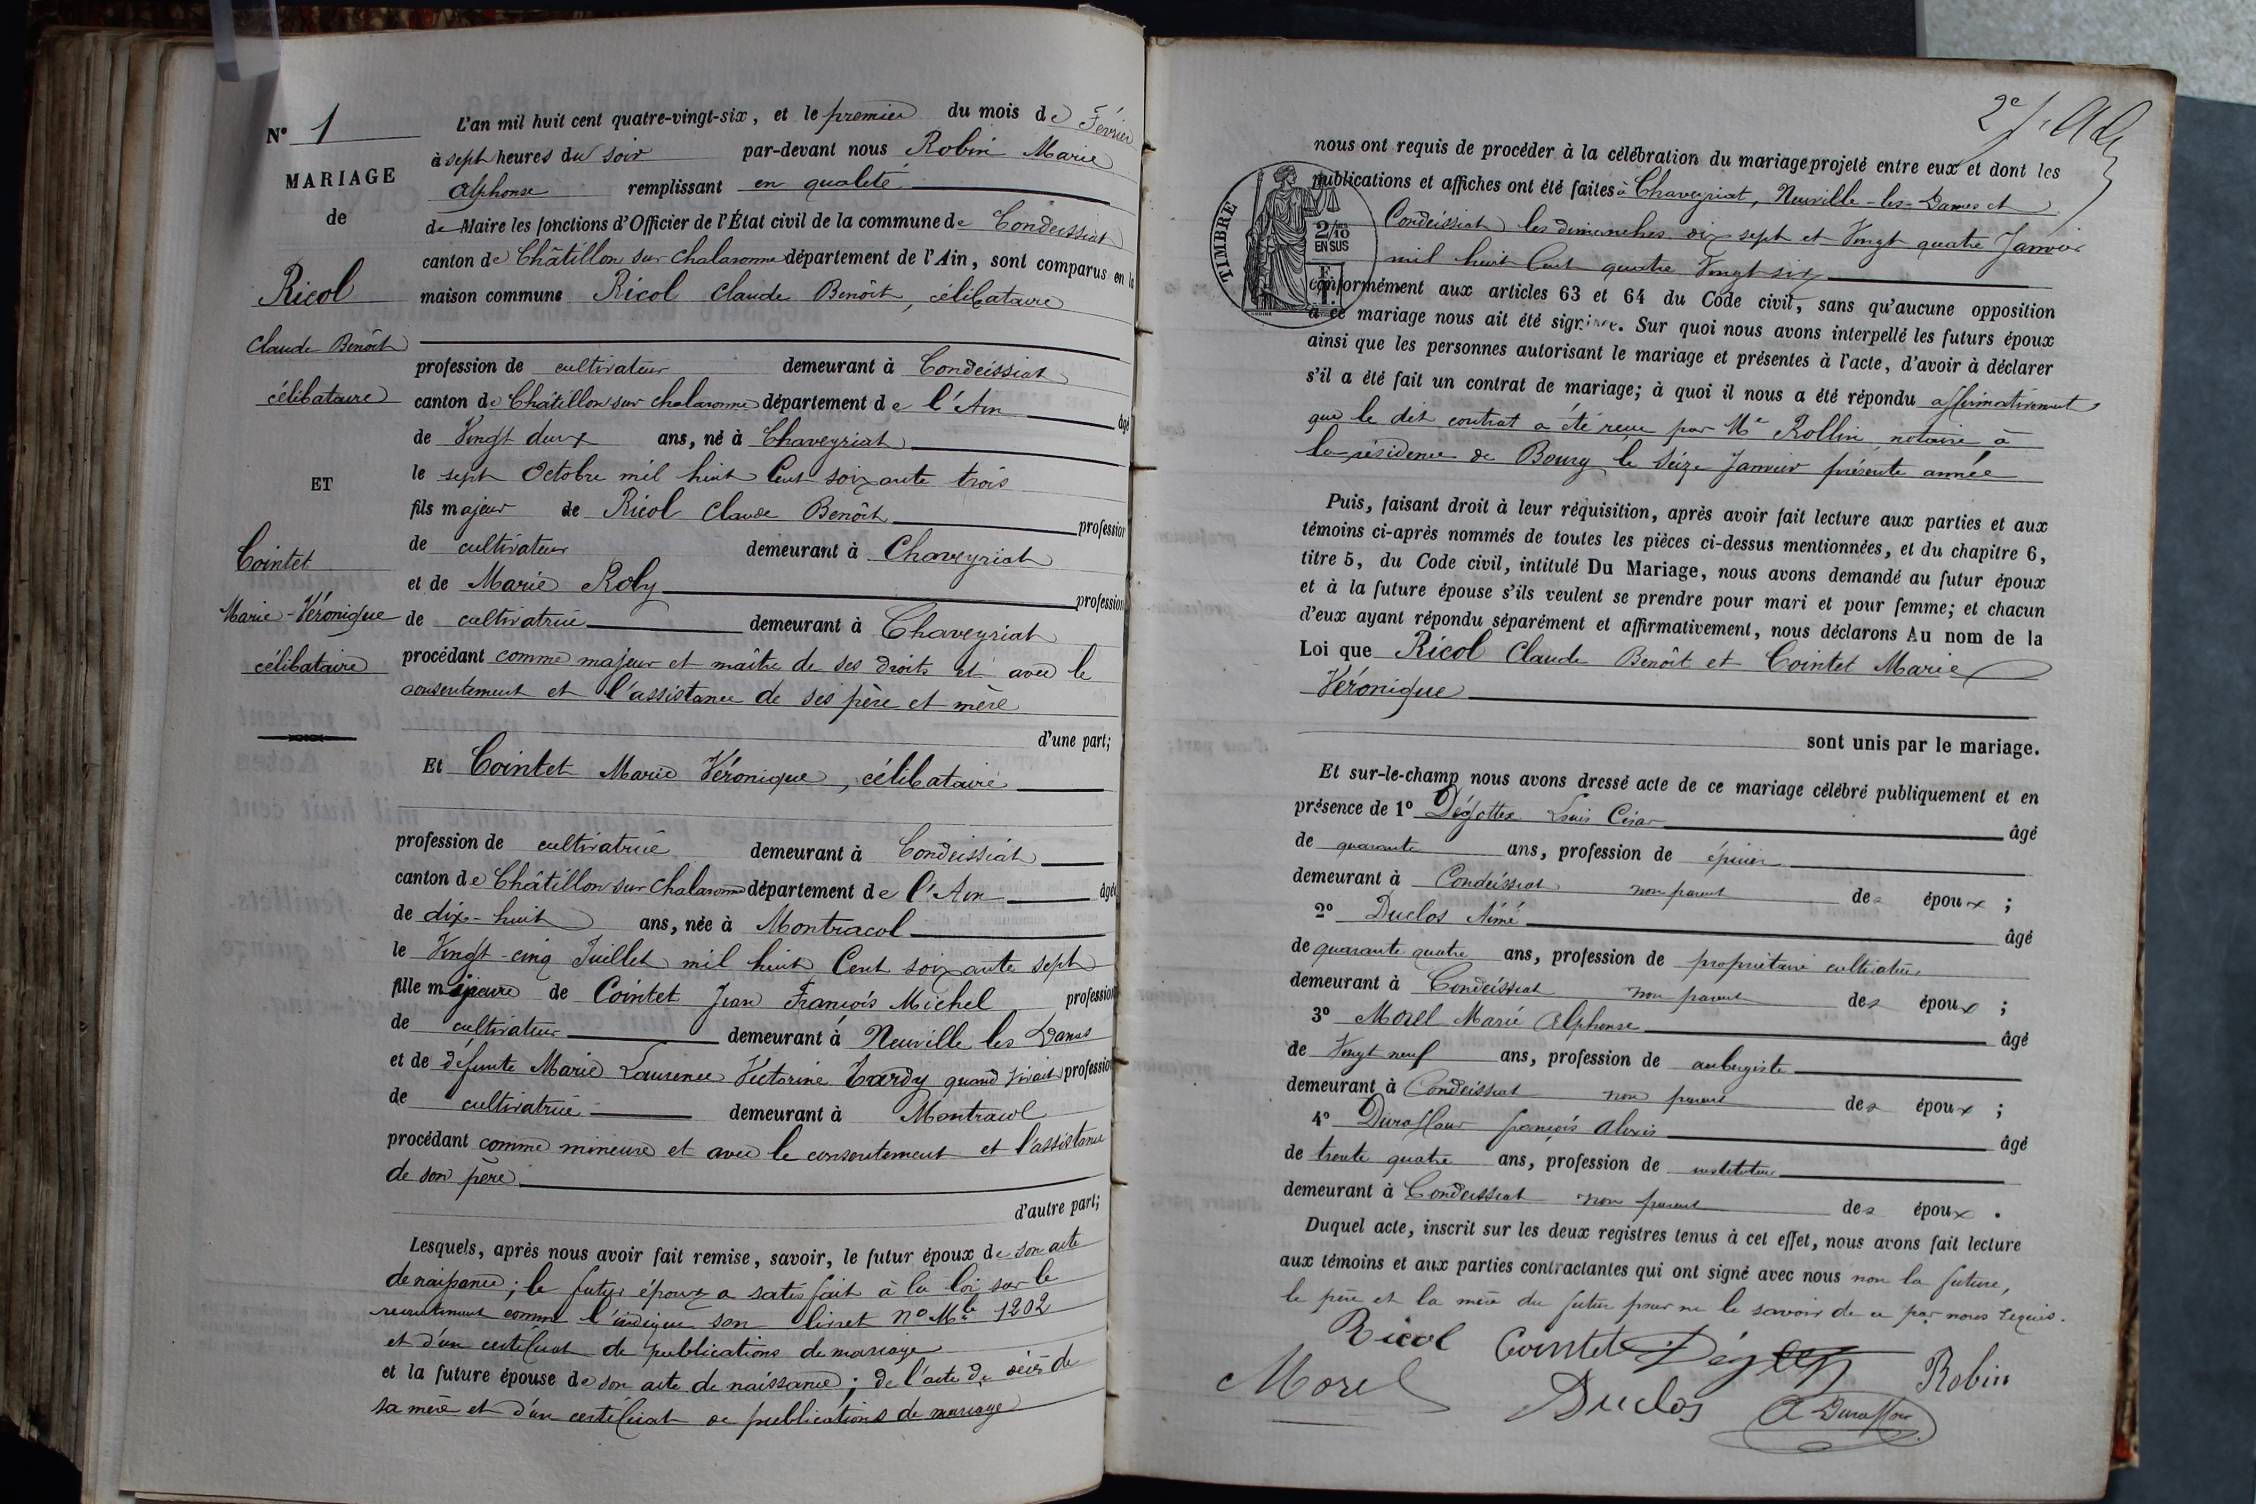 N° 1
MARIAGE
de
Ricol
Claude Benôit
célibataire
ET
Cointet
Marie-Véronique
célibataire
L'an mil huit cent quatre-vingt-six, et le premier du mois de Février
à sept heures du soir par-devant nous Robin Marie
Alphonse remplissant en qualité
de Maire les fonctions d'Officier de l'État civil de la commune de Condeissiat
canton de Châtillon sur chalaronne département de l'Ain, sont comparus en la
maison commune Ricol Claude Benôit, célibataire
profession de cultivateur demeurant à Condeissiat
canton de Châtillon sur chalaronne département de l'Ain âgé
de Vingt deux ans, né à Chaveyriat
le sept Octobre mil huit Cent soixante trois
fils majeur de Ricol Claude Benôit profession
de cultivateur demeurant à Chaveyriat
et de Marie Roby profession
de cultivatrice demeurant à Chaveyriat
procédant comme majeur et maître de ses droits et avec le
consentement et l'assistance de ses père et mère
d'une part;
Et Cointet Marie Véronique, célibataire
profession de cultivatrice demeurant à Condeissiat
canton de Châtillon sur chalaronne département de l'Ain âgée
de dix-huit ans, née à Montracol
le Vingt-cinq Juillet mil huit Cent soixante sept
fille mineure de Cointet Jean François Michel profession
de cultivateur demeurant à Neuville les Dames
et de défunte Marie Laurence Victorine Tardy quand vivait profession
de cultivatrice demeurant à Montracol
procédant comme mineure et avec le consentement et l'assistance
de son père
d'autre part;
Lesquels, après nous avoir fait remise, savoir, le futur époux de son acte
de naissance; le futur époux a satisfait à la loi sur le
recrutement comme l'indique son livret N° Mle 1202
et d'un certificat de publications de mariage
et la future épouse de son acte de naissance; de l'acte de décès de
sa mère et d'un certificat de publications de mariage
2e f.
nous ont requis de procéder à la célébration du mariage projeté entre eux et dont les
publications et affiches ont été faites à Chaveyriat, Neuville-les-Dames et
Condeissiat les dimanches dix sept et Vingt quatre Janvier
mil huit Cent quatre Vingt six
TIMBRE
2/10
EN SUS
conformément aux articles 63 et 64 du Code civil, sans qu'aucune opposition
à ce mariage nous ait été signifiée. Sur quoi nous avons interpellé les futurs époux
ainsi que les personnes autorisant le mariage et présentes à l'acte, d'avoir à déclarer
s'il a été fait un contrat de mariage; à quoi il nous a été répondu affirmativement
que le dit contrat a été reçu par Me Rollin notaire à
la résidence de Bourg le Seize Janvier présente année
Puis, faisant droit à leur réquisition, après avoir fait lecture aux parties et aux
témoins ci-après nommés de toutes les pièces ci-dessus mentionnées, et du chapitre 6,
titre 5, du Code civil, intitulé Du Mariage, nous avons demandé au futur époux
et à la future épouse s'ils veulent se prendre pour mari et pour femme; et chacun
d'eux ayant répondu séparément et affirmativement, nous déclarons Au nom de la
Loi que Ricol Claude Benôit et Cointet Marie
Véronique
sont unis par le mariage.
Et sur-le-champ nous avons dressé acte de ce mariage célébré publiquement et en
présence de 1° Louis César âgé
de quarante ans, profession de épicier
demeurant à Condeissiat non parent des époux ;
2° Duclos Aimé âgé
de quarante quatre ans, profession de propriétaire cultivateur
demeurant à Condeissiat non parent des époux ;
3° Morel Marie Alphonse âgé
de Vingt neuf ans, profession de aubergiste
demeurant à Condeissiat non parent des époux ;
4° Duraffour françois Alexis âgé
de trente quatre ans, profession de instituteur
demeurant à Condeissiat non parent des époux .
Duquel acte, inscrit sur les deux registres tenus à cet effet, nous avons fait lecture
aux témoins et aux parties contractantes qui ont signé avec nous non la future,
le père et la mère du futur pour ne le savoir de ce par nous requis.
Ricol Cointet Robin
Morel Duclos A Duraffour